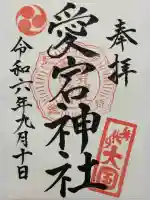 奉拝
愛宕神社
令和六年九月十日
大国